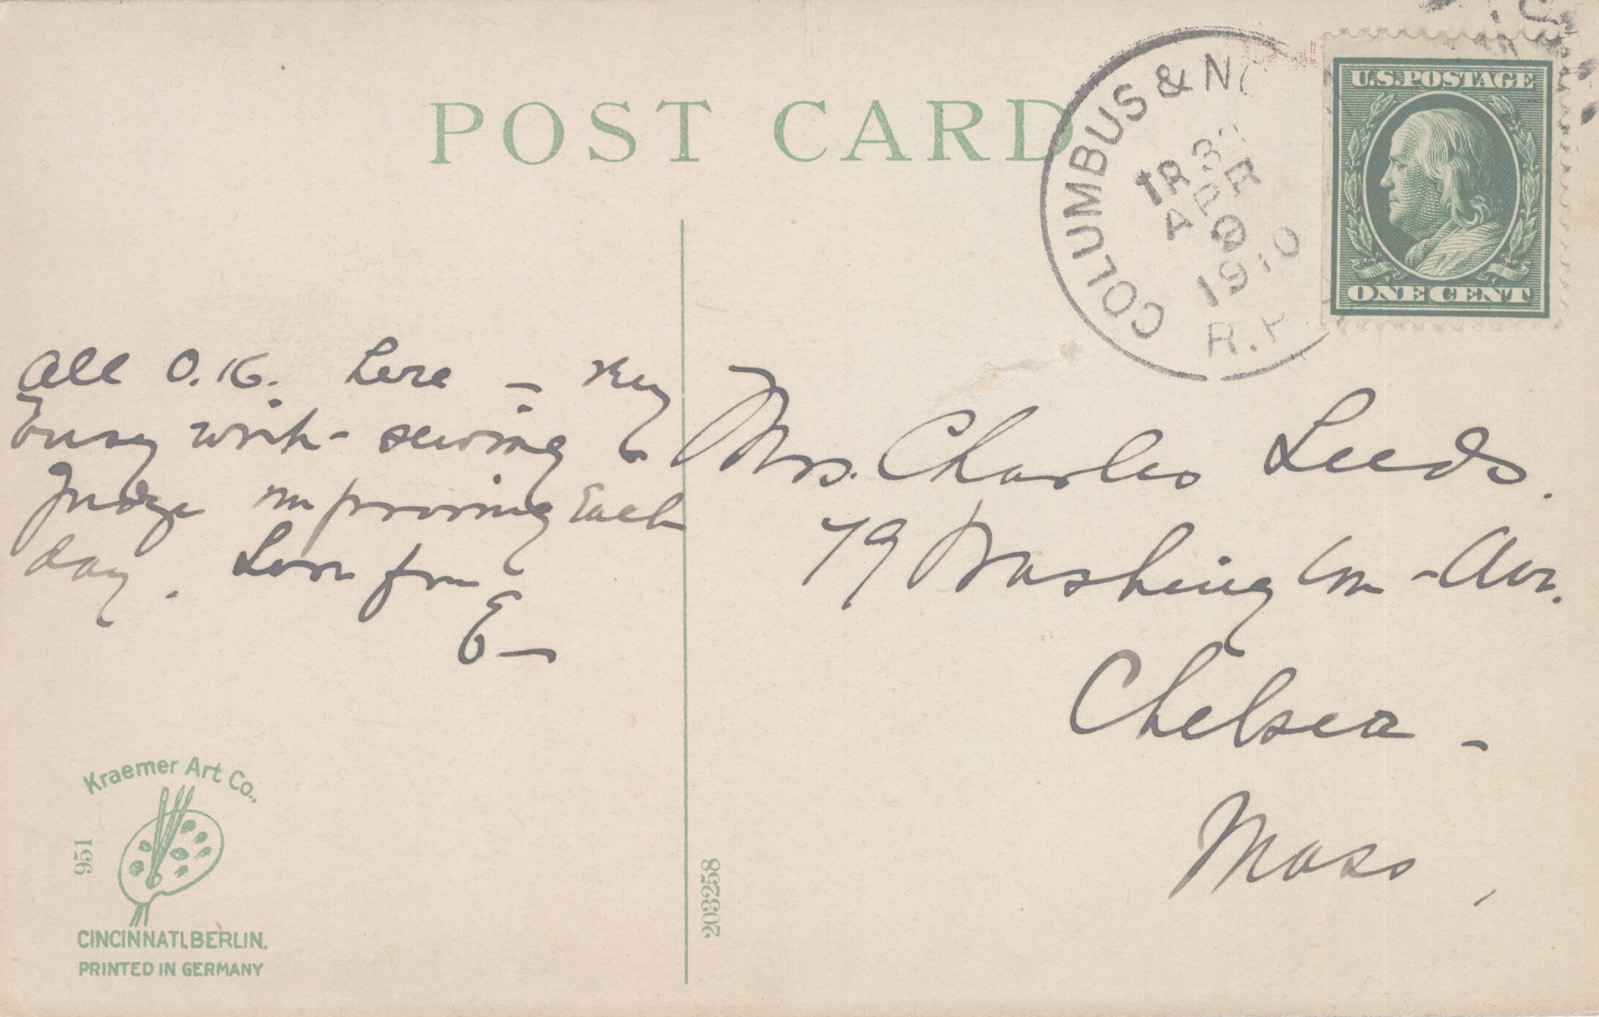 POST CARD
COLUMBUS & NO
TR 3
APR
9
1910
R.P.
U.S. POSTAGE
ONE CENT
All O.K. here – Very
busy with – sewing &
Judge improving Each
day. Love from
E –
Mrs. Charles Leeds.
79 Washington – Ave.
Chelsea –
Mass,
Kraemer Art Co.,
951
CINCINNATI, BERLIN.
PRINTED IN GERMANY
203258